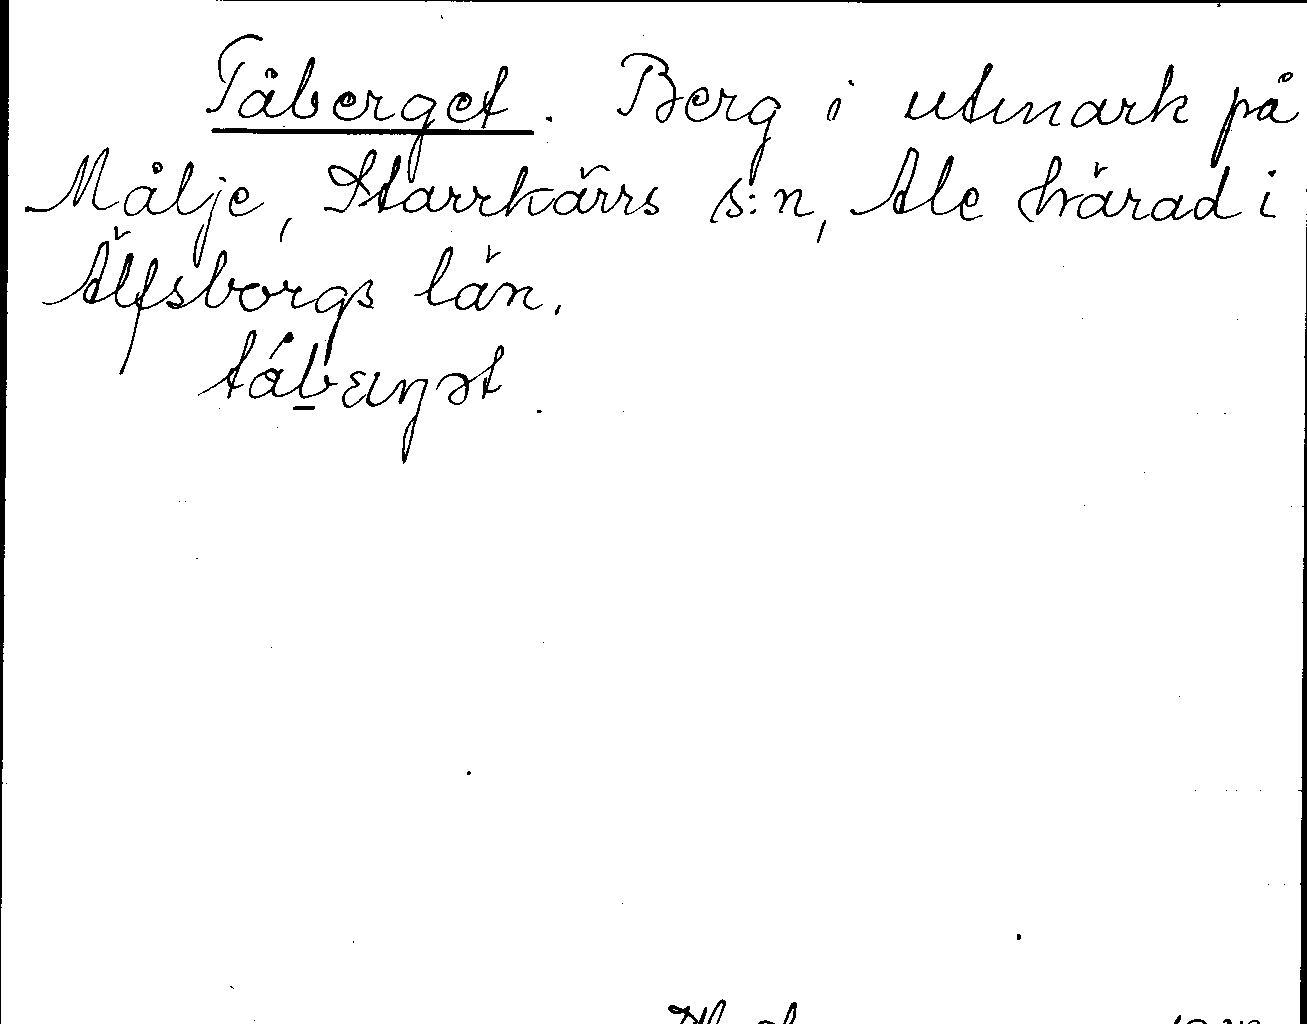 Tåberget. Berg i utmark på
Målje, Starrkärrs s:n, Ale härad i
Älfsborgs län.